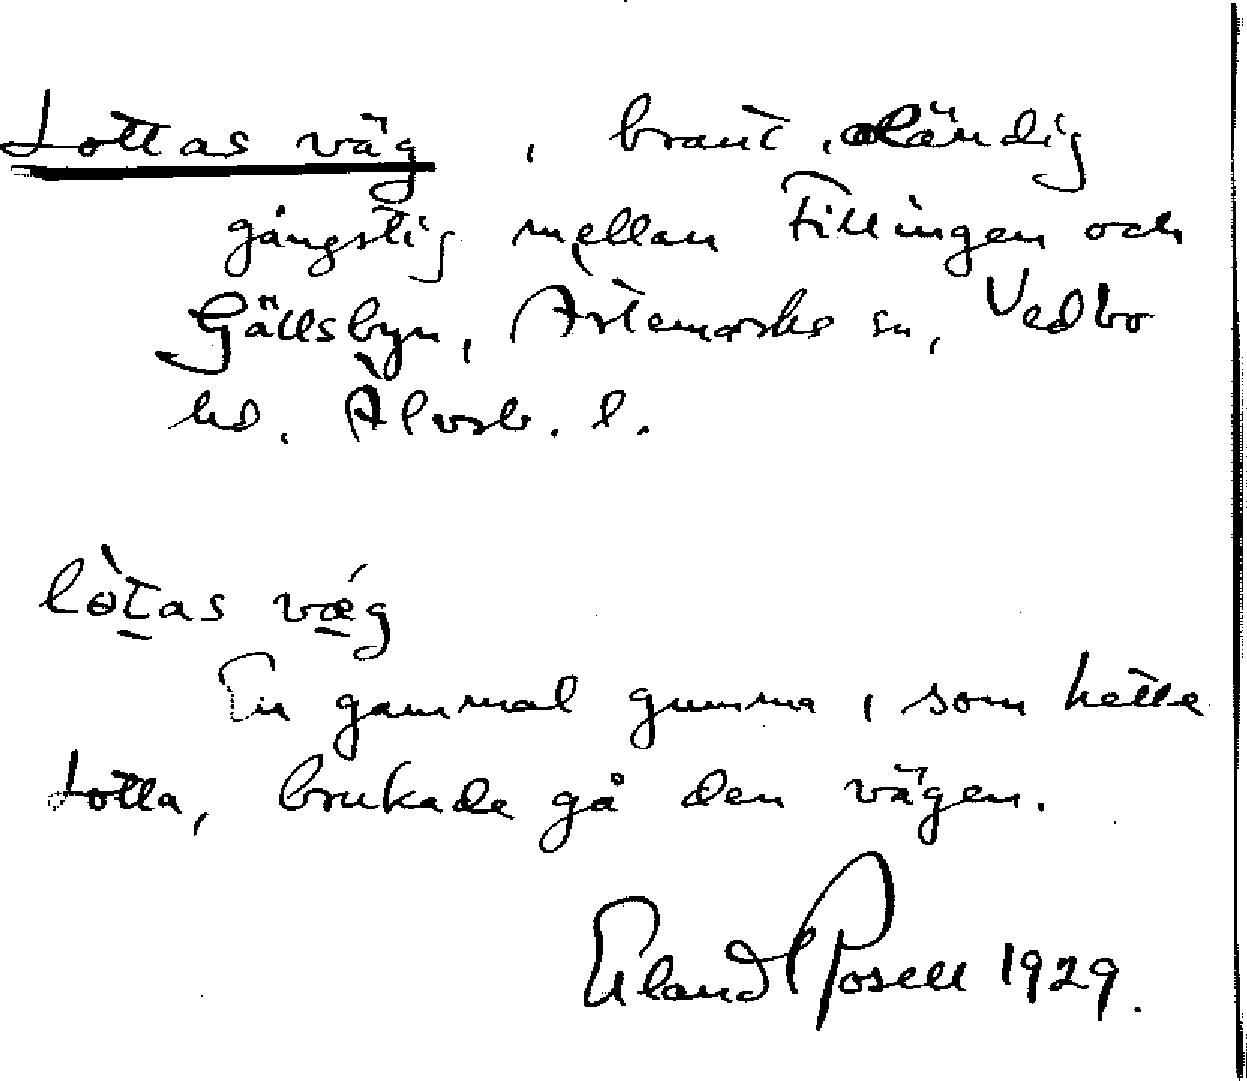 Lottas väg, brant, oländig
gångstig mellan Tillingen och
Gällsbyn, Ärtemarks sn, Vedbo
hd. Älvsb. l.
lòt̲as vǽ̲g
En gammal gumma, som hette
Lotta, brukade gå den vägen.
Erland Rosell 1929.